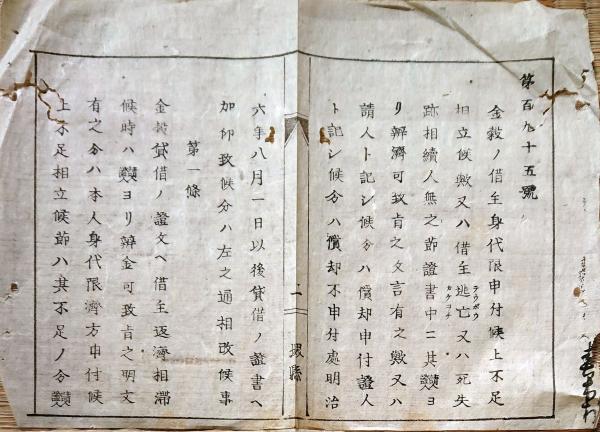 第百九十五號
金穀ノ借主身代限申付候上不足
相立候歟又ハ借主逃亡又ハ死失
テウボウ
カケコチ
跡相續人無之節證書中ニ其䫋ヨ
リ辨濟可致旨之文言有之歟又ハ
請人ト記シ候分ハ償却申付證人
ト記シ候分ハ償却不申付處明治
六年八月一日以後貸借ノ證書ヘ
加印致候分ハ左之通相改候事
第一條
金穀貸借ノ證文ヘ借主返濟相滯
候時ハ䫋ヨリ辨金可致旨之明文
有之分ハ本人身代限濟方申付候
上不足相立候節ハ其不足ノ分䫋
二